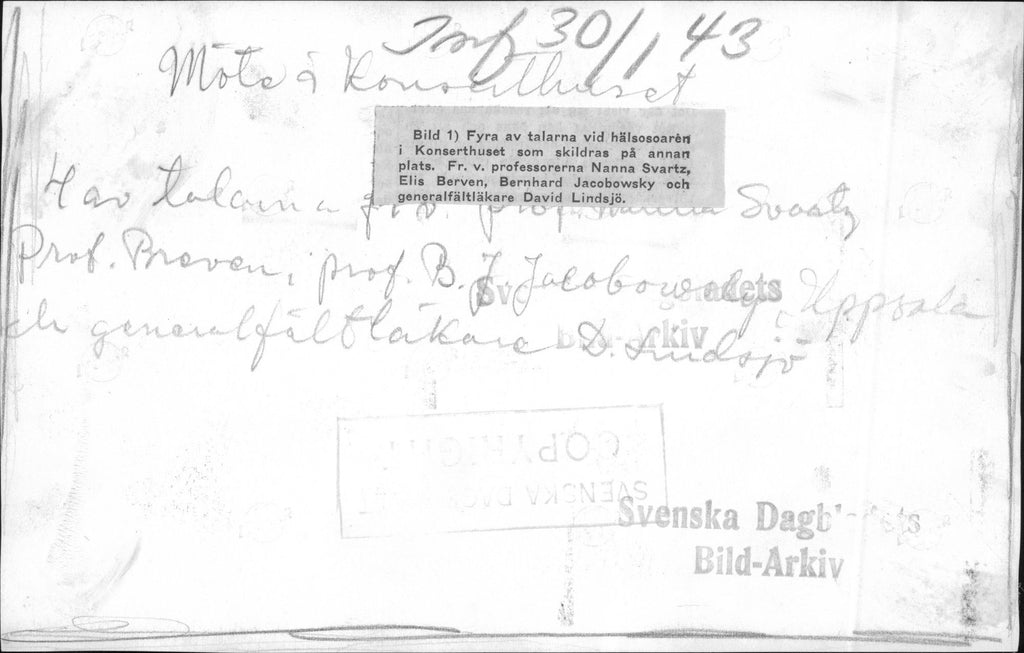 Inf 30/1 43
Möte i Konserthuset
Bild 1) Fyra av talarna vid hälsosoarén
i Konserthuset som skildras på annan
plats. Fr. v. professorerna Nanna Svartz,
Elis Berven, Bernhard Jacobowsky och
generalfältläkare David Lindsjö.
4 av talarna fr. v. prof. Nanna Svartz
Prof. Breven, prof. B. J. Jacobowsky, Uppsala
och generalfältläkare D. Lindsjö
Bild-Arkiv
COPYRIGHT
SVENSKA DAGBLADET
Svenska Dagbladets
Bild-Arkiv